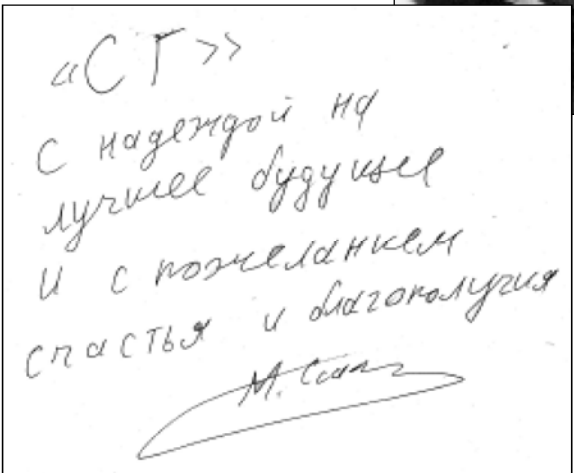 «СГ»
С надеждой на
лучшее будущее
и с пожеланием
счастья и благополучия
М.